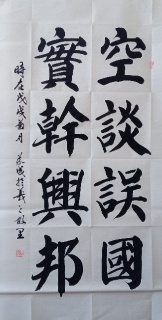 空談誤國
實幹興邦
時在戊戌菊月